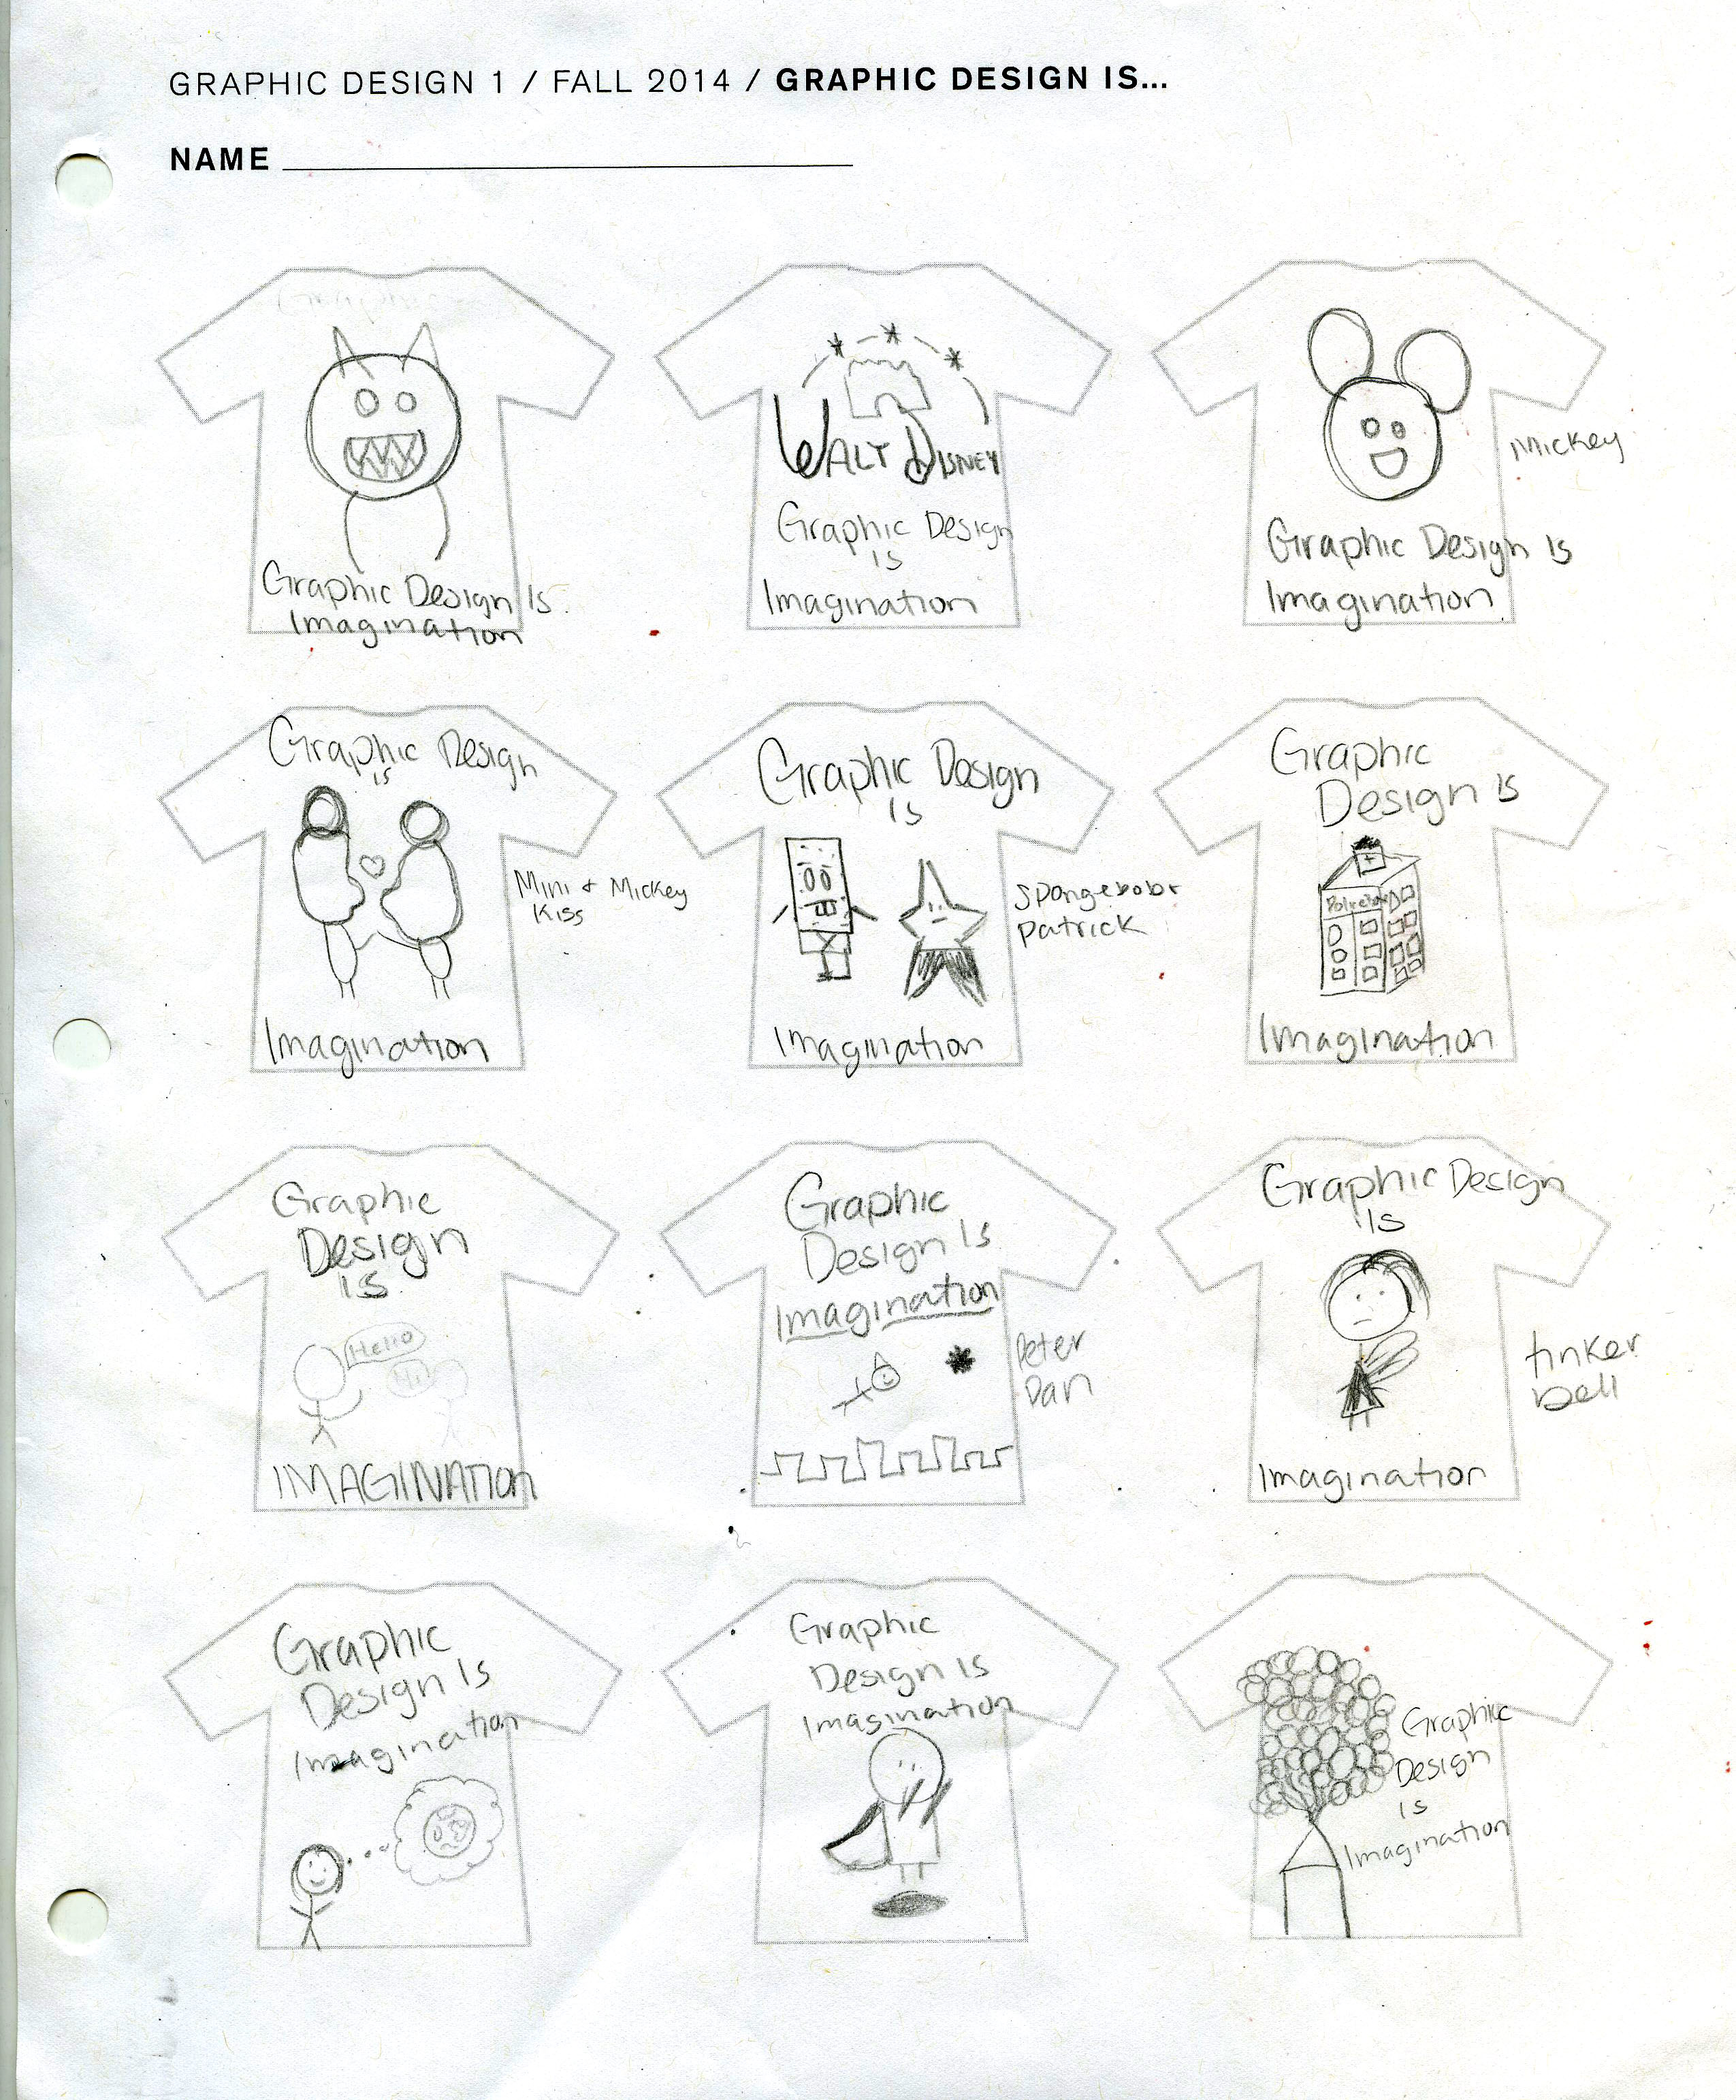 GRAPHIC DESIGN 1 / FALL 2014 / GRAPHIC DESIGN IS...
NAME
Graphic
Graphic Design Is
Imagination
WALT DISNEY
Graphic Design
is
Imagination
Mickey
Graphic Design is
Imagination
Graphic Design
is
Mini + Mickey
Kiss
Imagination
Graphic Design
Is
Spongebob +
Patrick
Imagination
Graphic
Design is
Imagination
Graphic
Design
is
Hello
Hi
IMAGINATION
Graphic
Design Is
Imagination
Peter
Pan
Graphic Design
Is
tinker
bell
Imagination
Graphic
Design Is
Imagination
Graphic
Design Is
Imagination
Graphic
Design
is
Imagination